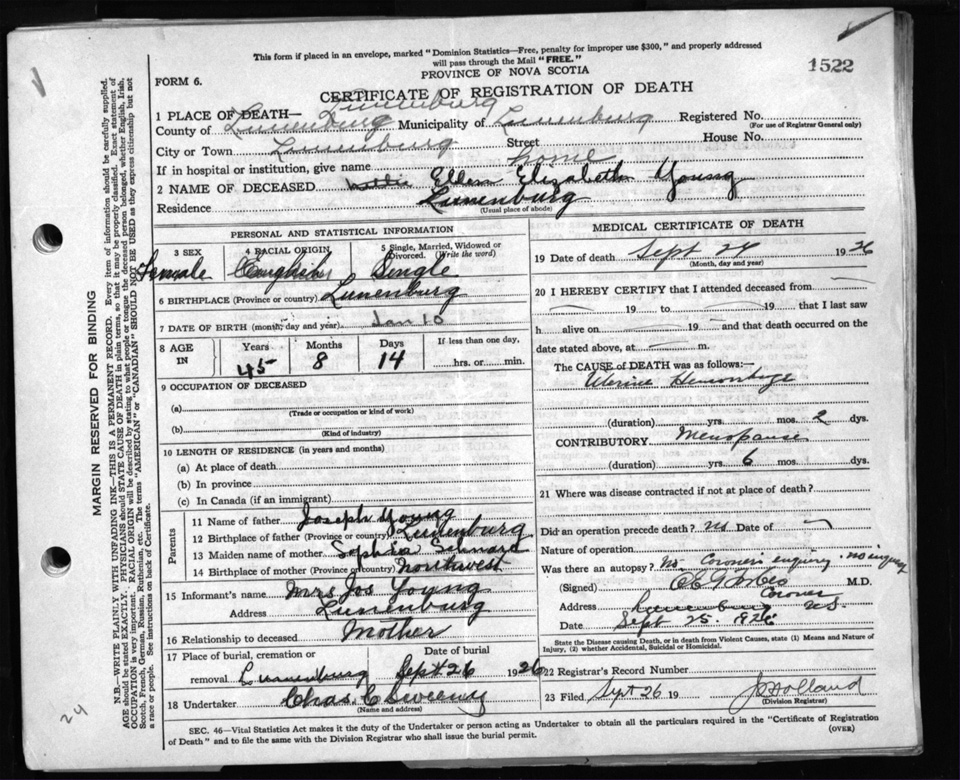 This form if placed in an envelope, marked "Dominion Statistics—Free, penalty for improper use $300," and properly addressed
will pass through the Mail "FREE."
PROVINCE OF NOVA SCOTIA
1522
FORM 6.
CERTIFICATE OF REGISTRATION OF DEATH
Lunenburg
1 PLACE OF DEATH—
County of Lunenburg Municipality of Lunenburg Registered No.
(For use of Registrar General only)
City or Town Lunenburg Street House No.
If in hospital or institution, give name home
2 NAME OF DECEASED Ellen Elizabeth Young
Residence Lunenburg
(Usual place of abode)
PERSONAL AND STATISTICAL INFORMATION
3 SEX 4 RACIAL ORIGIN 5 Single, Married, Widowed or Divorced. (Write the word)
Female English Single
6 BIRTHPLACE (Province or country) Lunenburg
7 DATE OF BIRTH (month, day and year) Jan 10
8 AGE IN Years Months Days If less than one day,
45 8 14 hrs. or min.
9 OCCUPATION OF DECEASED
(a)
(Trade or occupation or kind of work)
(b)
(Kind of industry)
10 LENGTH OF RESIDENCE (in years and months)
(a) At place of death
(b) In province
(c) In Canada (if an immigrant)
Parents
11 Name of father Joseph Young
12 Birthplace of father (Province or country) Lunenburg
13 Maiden name of mother Sophia
14 Birthplace of mother (Province or country) Northwest
15 Informant's name Mrs Jos Young
Address Lunenburg
16 Relationship to deceased Mother
17 Place of burial, cremation or removal Date of burial
Lunenburg Sept 26 1926
18 Undertaker Chas. C Sweeny
(Name and address)
MEDICAL CERTIFICATE OF DEATH
19 Date of death Sept 24 1926
(Month, day and year)
20 I HEREBY CERTIFY that I attended deceased from
19 to 19 that I last saw
h alive on 19 and that death occurred on the
date stated above, at m.
The CAUSE of DEATH was as follows:
Uterine Hemorrhage
(duration) yrs. mos. 2 dys.
CONTRIBUTORY Menopause
(duration) yrs. 6 mos. dys.
21 Where was disease contracted if not at place of death?
Did an operation precede death? No Date of
Nature of operation
Was there an autopsy? No Coroner's enquiry
(Signed) M.D.
Coroner
Address Lunenburg NS.
Date Sept 25. 1926
State the Disease causing Death, or in death from Violent Causes, state (1) Means and Nature of
Injury, (2) whether Accidental, Suicidal or Homicidal.
22 Registrar's Record Number
23 Filed Sept 26 19 Holland
(Division Registrar)
SEC. 46—Vital Statistics Act makes it the duty of the Undertaker or person acting as Undertaker to obtain all the particulars required in the "Certificate of Registration
of Death" and to file the same with the Division Registrar who shall issue the burial permit.
(OVER)
MARGIN RESERVED FOR BINDING
N.B.—WRITE PLAINLY WITH UNFADING INK—THIS IS A PERMANENT RECORD. Every item of information should be carefully supplied.
AGE should be stated EXACTLY. PHYSICIANS should STATE CAUSE OF DEATH in plain terms, so that it may be properly classified. Exact statement of
OCCUPATION is very important. RACIAL ORIGIN will be described by stating to what people or tongue the deceased person belonged, whether English, Irish,
Scotch, French, German, Russian, Ruthenian, etc. The terms "AMERICAN" or "CANADIAN" SHOULD NOT BE USED as they express citizenship but not
a race or people. See instructions on back of Certificate.
24